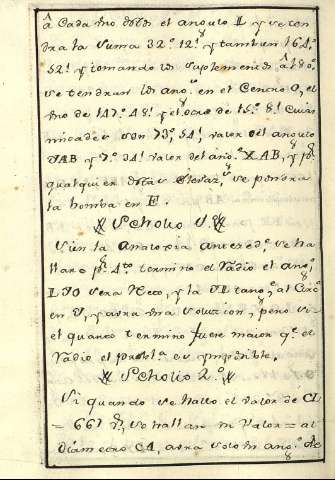 â Cada uno de los el angulo I y se ten
dra la suma 32°. 12'. y tambien 164°.
52'. y tomando los suplementos à 180°.
se tendran los ang.s en el Centro O, el
uno de 147°. 48'. y el otro de 15°. 8'. Cuias
mitades son 73°. 54'. valor del angulo
JAB y 7°. 34'. valor del ang.° XAB, y p.r
qualquiera de las se pondra
la bomba en E.
Scholio 1.°
Si en la Analogia anteced.te se ha
llare p.r 4.to termino el Radio el ang.°
IJO sera Recto, y la JI tang.te al Circ.°
en J, y avra una solucion, pero si
el quarto termino fuere maior q.e el
Radio el probl.a es ymposible.
Scholio 2.°
Si quando se hallo el valor de CL
= 661 se hallara su Valor = al
diametro CA, avra solo un ang.° de